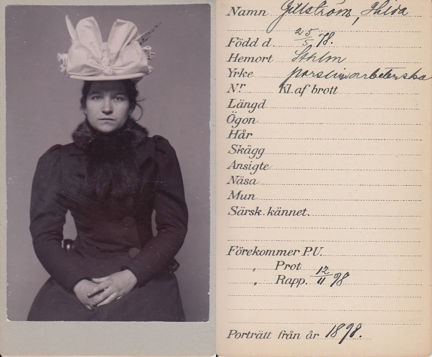 Namn Gillström, Hilda
Född d. 25/5 78.
Hemort Sthlm
Yrke porslinsarbeterska
Nr Kl. af brott
Längd
Ögon
Hår
Skägg
Ansigte
Näsa
Mun
Särsk. kännet.
Förekommer P.U.
„ Prot
„ Rapp. 12/11 98
Porträtt från år 1898.